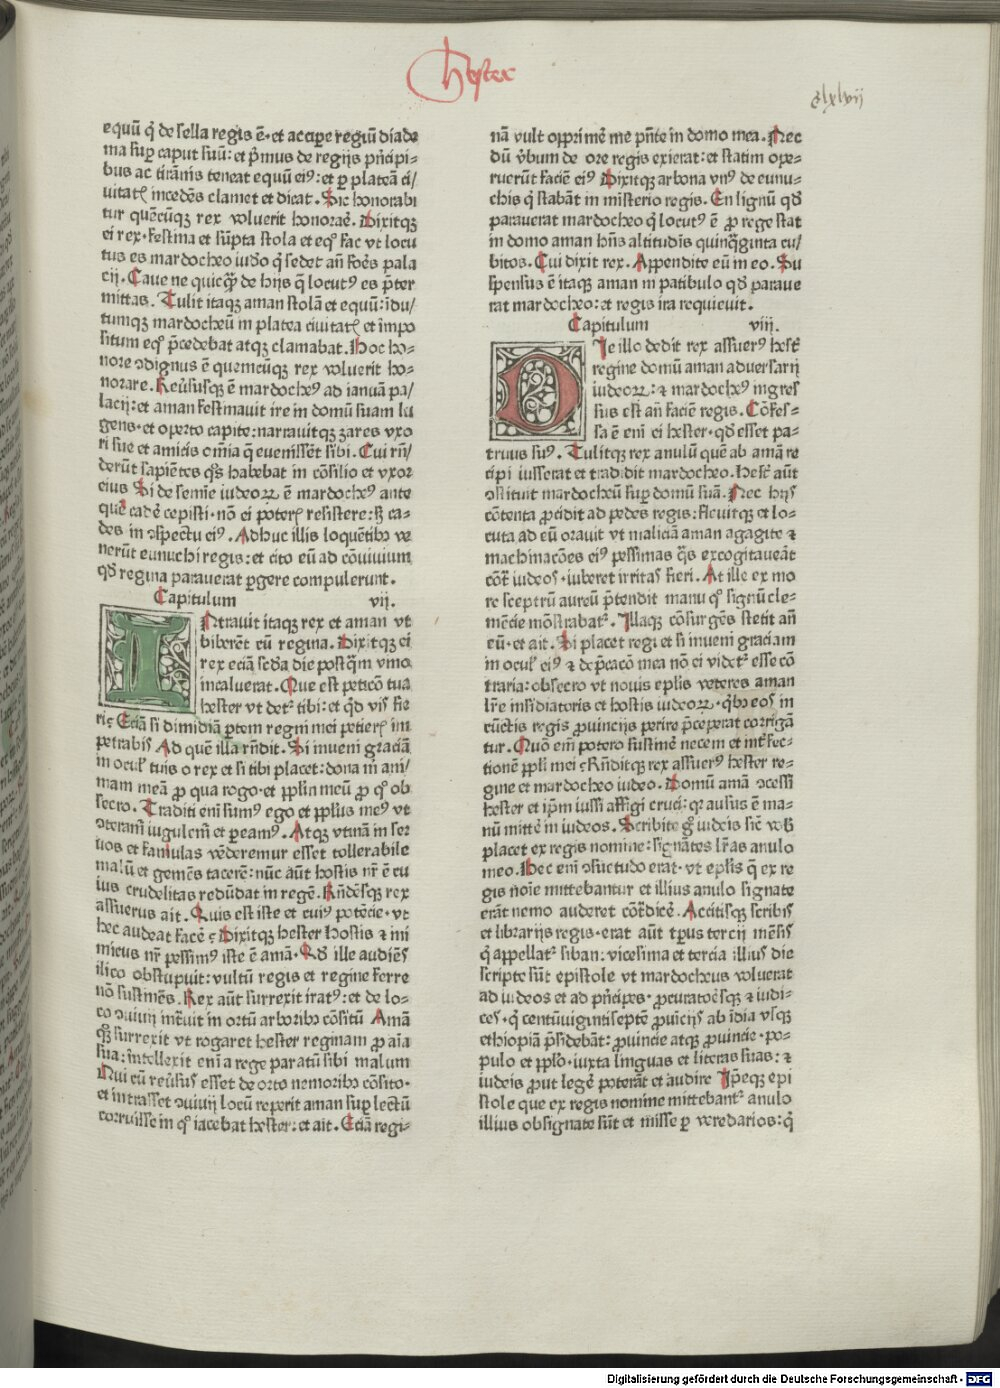 Hester
clxlvij
equū q̄ de sella regis ē· et accipe regiū diade
ma sup caput suū: et p̄mus de regijs pn̄cipi-
bus ac tirānis teneat equū eiꝰ: et p plateā ci/
uitatꝭ incedēs clamet et dicat. Sic honorabi
tur quēcūqꝫ rex voluerit honorare. Dixitqꝫ
ei rex· Festina et sūpta stola et eqͦ fac vt locu
tus es mardocheo iudeo q̄ sedet an̄ fores pala
cij. Caue ne quicqͣꝫ de hijs q̄ locutꝰ es p̄ter
mittas. Tulit itaqꝫ aman stolā et equū: īdu/
tumqꝫ mardocheū in platea ciuitatꝭ et impo
situm eqͦ p̄cedebat atqꝫ clamabat. Hoc ho-
nore ↄdignus ē quemcūqꝫ rex voluerit ho-
norare. Reūsusqꝫ ē mardocheꝰ ad ianuā pa/
lacij: et aman festinauit ire in domū suam lu
gens· et operto capite: narrauitqꝫ zares vxo
ri sue et amicis om̄ia q̄ euenissēt sibi. Cui rn̄/
derūt sapiētes qͦs habebat in cōsilio et vxor
eius Si de semīe iudeoꝝ ē mardocheꝰ ante
quē cadē cepisti· nō ei poterꝭ resistere: sꝫ ca-
des in ↄspectu eiꝰ. Adhuc illis loquētibꝰ ve
nerūt eunuchi regis: et cito eū ad cōuiuium
qd̄ regina parauerat pgere compulerunt.
Capitulum vij.
INtrauit itaqꝫ rex et aman vt
biberēt cū regina. Dixitqꝫ ei
rex eciā scd̄a die postqͣm vino
incaluerat. Que est peticō tua
hester vt detꝰ tibi: et qd̄ vis fie
ri? Eciā si dimidiā ptem regni mei petierꝭ im
petrabis Ad quē illa rn̄dit. Si inueni graciā
in oculꝭ tuis o rex et si tibi placet: dona m̄ ani/
mam meā ꝓ qua rogo· et pplm̄ meū ꝓ qͦ ob
secro. Traditi enī sumꝰ ego et pplus meꝰ vt
ↄteram̄ iugulem̄ et peamꝰ. Atqꝫ vtinā in ser
uos et famulas vēderemur esset tollerabile
malū et gemēs tacerē: nūc aūt hostis nr̄ ē cu
ius crudelitas redūdat in regē. Rn̄dēsqꝫ rex
assuerus ait. Quis est iste et cuiꝰ potēcie· vt
hec audeat facē? Dixitqꝫ hester Hostis ⁊ ini
micus nr̄ pessimꝰ iste ē amā. Qd̄ ille audiēs
ilico obstupuit: vultū regis et regine ferre
nō sustinēs. Rex aūt surrexit iratꝰ: et de lo-
co ↄuiuij int̄uit in ortū arboribꝫ cōsitū Amā
qͦꝫ surrexit vt rogaret hester reginam ꝓ aīa
sua: intellexit enī a rege paratū sibi malum
Qui cū reūsus esset de orto nemoribꝫ cōsito·
et intrasset ↄuiuij locū reperit aman sup lectū
corruisse in qͦ iacebat hester: et ait. Eciā regi-
nā vult opprimē me pn̄te in domo mea. Nec
dū v̄bum de ore regis exierat: et statim ope-
ruerūt faciē eiꝰ Dixitqꝫ arbona vnꝰ de eunu-
chis q̄ stabāt in misterio regis. En lignū qd̄
parauerat mardocheo q̄ locutꝰ ē ꝓ rege stat
in domo aman hn̄s altitudīs quinqͣginta cu/
bitos. Cui dixit rex. Appendite eū in eo. Su
spensus ē itaqꝫ aman in patibulo qd̄ paraue
rat mardocheo: et regis ira requieuit.
Capitulum viij.
DIe illo dedit rex assuerꝰ hestˀ
regine domū aman aduersarij
iudeoꝝ: ⁊ mardocheꝰ ingres
sus est an̄ faciē regis. Cōfes-
sa ē enī ei hester· qd̄ esset pa-
truus suꝰ. Tulitqꝫ rex anulū quē ab amā re
cipi iusserat et tradidit mardocheo. Hestˀ aūt
ↄstituit mardocheū sup domū suā. Nec hijs
cōtenta ꝓcidit ad pedes regis: fleuitqꝫ et lo-
cuta ad eū orauit vt maliciā aman agagite ⁊
machinacōes eiꝰ pessimas qͣs excogitaueāt
cōtˀ iudeos· iuberet irritas fieri. At ille ex mo
re sceptrū aureū p̄tendit manu qͦ signū cle-
mēcie mōstrabatˀ. Illaqꝫ cōsurgēs stetit an̄
eū· et ait. Si placet regi et si inueni graciam
in oculꝭ eiꝰ ⁊ dep̄cacō mea nō ei videtˀ esse cō
traria: obsecro vt nouis eplis veteres aman
lr̄e insidiatoris et hostis iudeoꝝ· qͥbꝫ eos in
cūctis regis ꝓuincijs perire p̄ceperat corrigā
tur. Quō enī potero sustinē necem et int̄fec-
tionē ppli mei? Rn̄ditqꝫ rex assuerꝰ hester re-
gine et mardocheo iudeo. Domū amā ↄcessi
hester et ip̄m iussi affigi cruci: qꝛ ausus ē ma-
nū mittē in iudeos. Scribite gͦ iudeis sic̄ vob̄
placet ex regis nomine: signātes lr̄as anulo
meo. Hec enī ↄsuetudo erat· vt eplis q̄ ex re
gis noīe mittebantur et illius anulo signate
erāt nemo auderet cōtˀdicē. Accitisqꝫ scribis
et librarijs regis· erat aūt tpus tercij mēsis
q̄ appellatˀ siban: vicesima et tercia illius die
scripte sūt epistole vt mardocheus voluerat
ad iudeos et ad pn̄cipes· ꝓcuratoēsqꝫ ⁊ iudi-
ces· q̄ centūuigintiseptē ꝓuīcijs ab īdia vsqꝫ
ethiopiā p̄sidebāt: ꝓuincie atqꝫ ꝓuincie· po-
pulo et pplo· iuxta linguas et literas suas: ⁊
iudeis ꝓut legē poterāt et audire Ip̄eqꝫ epi
stole que ex regis nomine mittebantˀ anulo
illius obsignate sūt et misse p veredarios: q̄
Digitalisierung gefördert durch die Deutsche Forschungsgemeinschaft - DFG